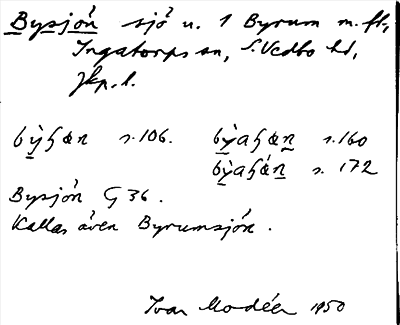 Bysjön sjö u. 1 Byrum m. fl.,
Ingatorps sn, S. Vedbo hd,
Jkp. l.
s. 106. s. 160
s. 172
Bysjön G 36.
Kallas även Byrumsjön.
Ivar Modéer 1950